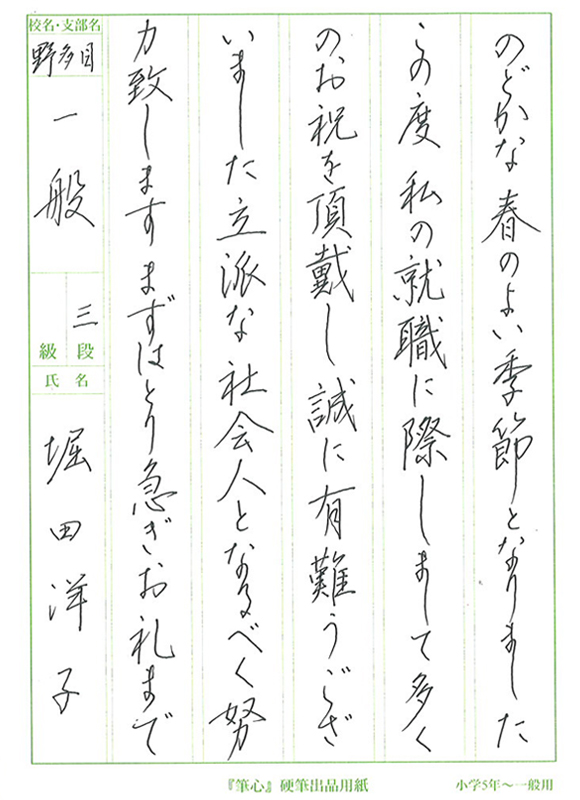 のどかな春のよい季節となりました
この度私の就職に際しまして多く
のお祝を頂戴し誠に有難うござ
いました立派な社会人となるべく努
力致しますまずはとり急ぎお礼まで
校名・支部名
野多目
一般
三
段
級
氏名
堀田洋子
『筆心』硬筆出品用紙
小学5年〜一般用